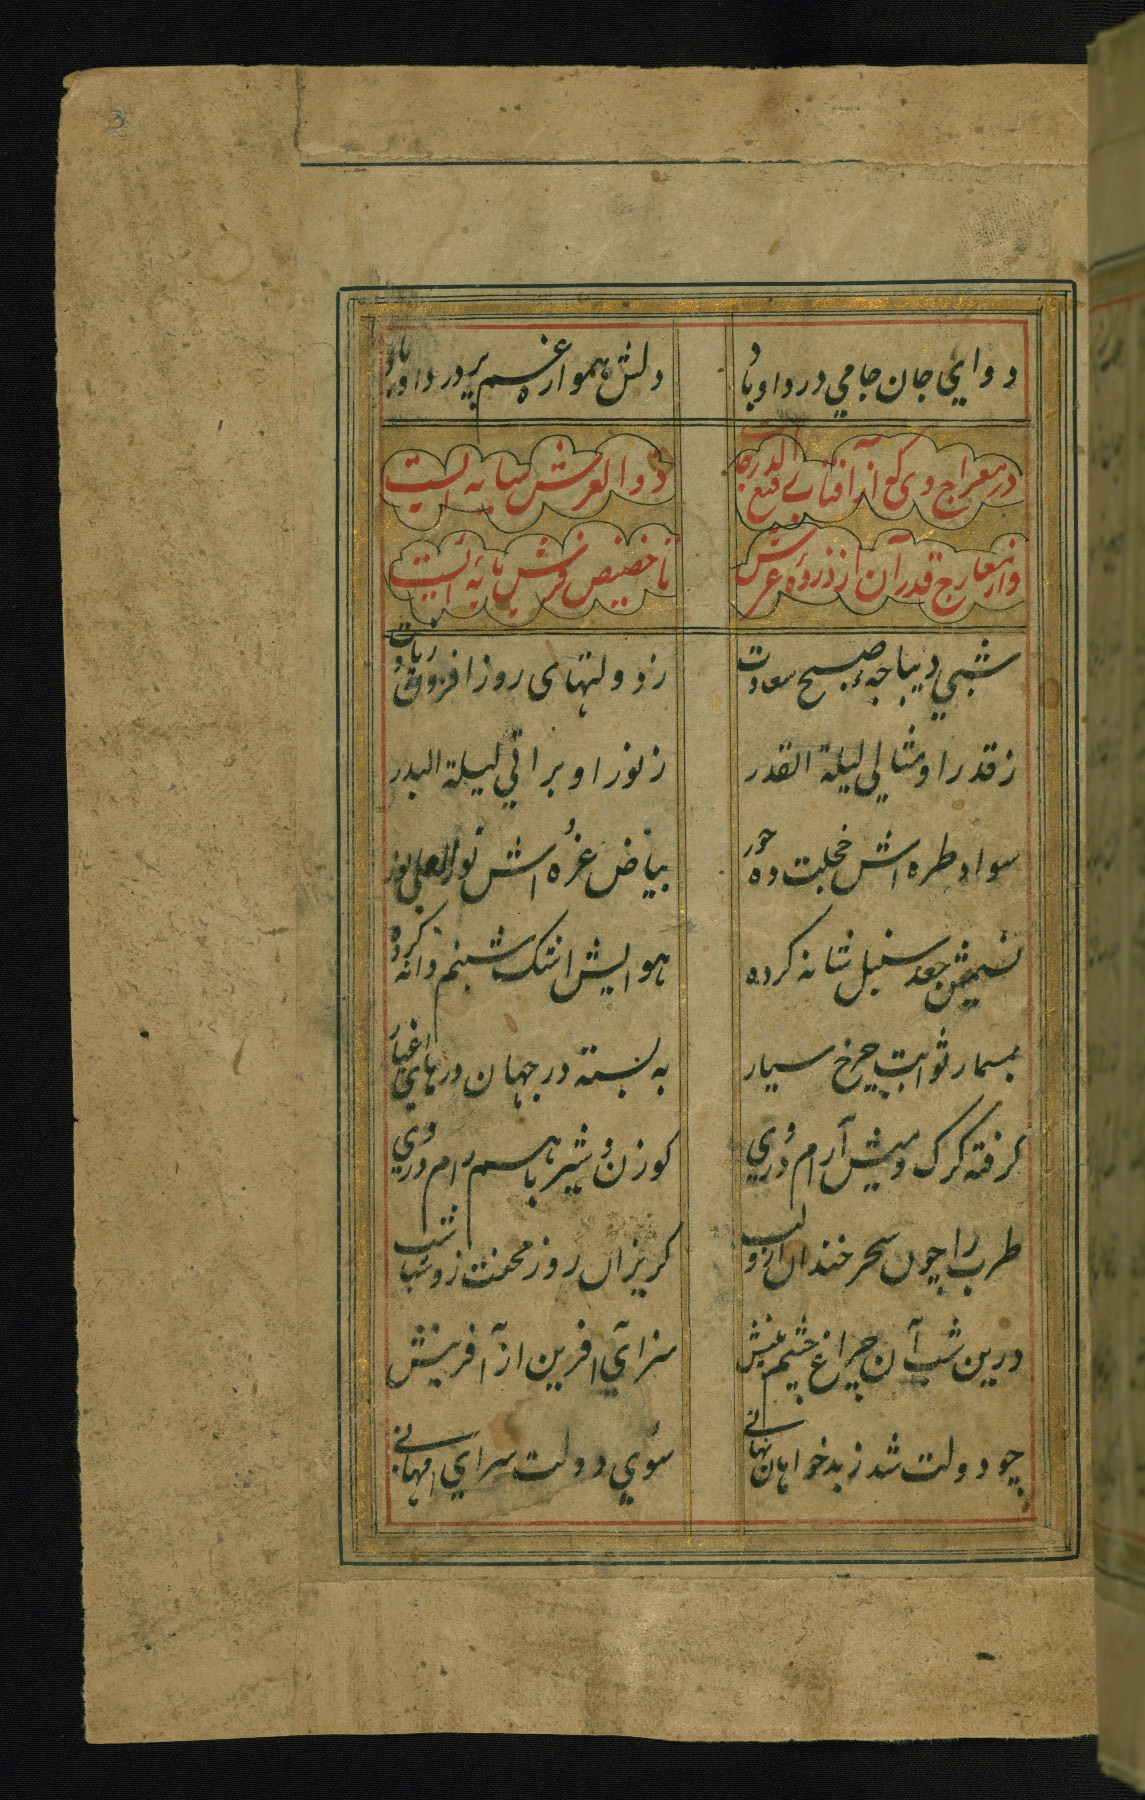 3
دوای جان جامی درد او باد دلش همواره غم پرورد او باد
در معراج وی که از آفتاب رفیع الدرجات ذوالعرش سایه ایست
و از معارج قدر آن از ذروه عرش تا حضیض فرش پایه ایست
شبی دیباجه صبح سعادت ز دولتهای روز افزون زیادت
ز قدر او مثالی لیلة القدر ز نور او براتی لیلة البدر
سواد طره اش خجلت ده حور بیاض غره اش نور علی نور
نسیمش جعد سنبل شانه کرده هوایش اشک شبنم دانه کرده
بمسمار ثوابت چرخ سیار به بسته در جهان درهای اغیار
گرفته گرگ و میش آرام در وی گوزن و شیر باهم رام در وی
طرب را چون سحر خندان ازو لب گریزان روز محنت زو شباشب
درین شب آن چراغ چشم بینش سزای آفرین از آفرینش
چو دولت شد ز بدخواهان نهانی سوی دولت سرای امهانی